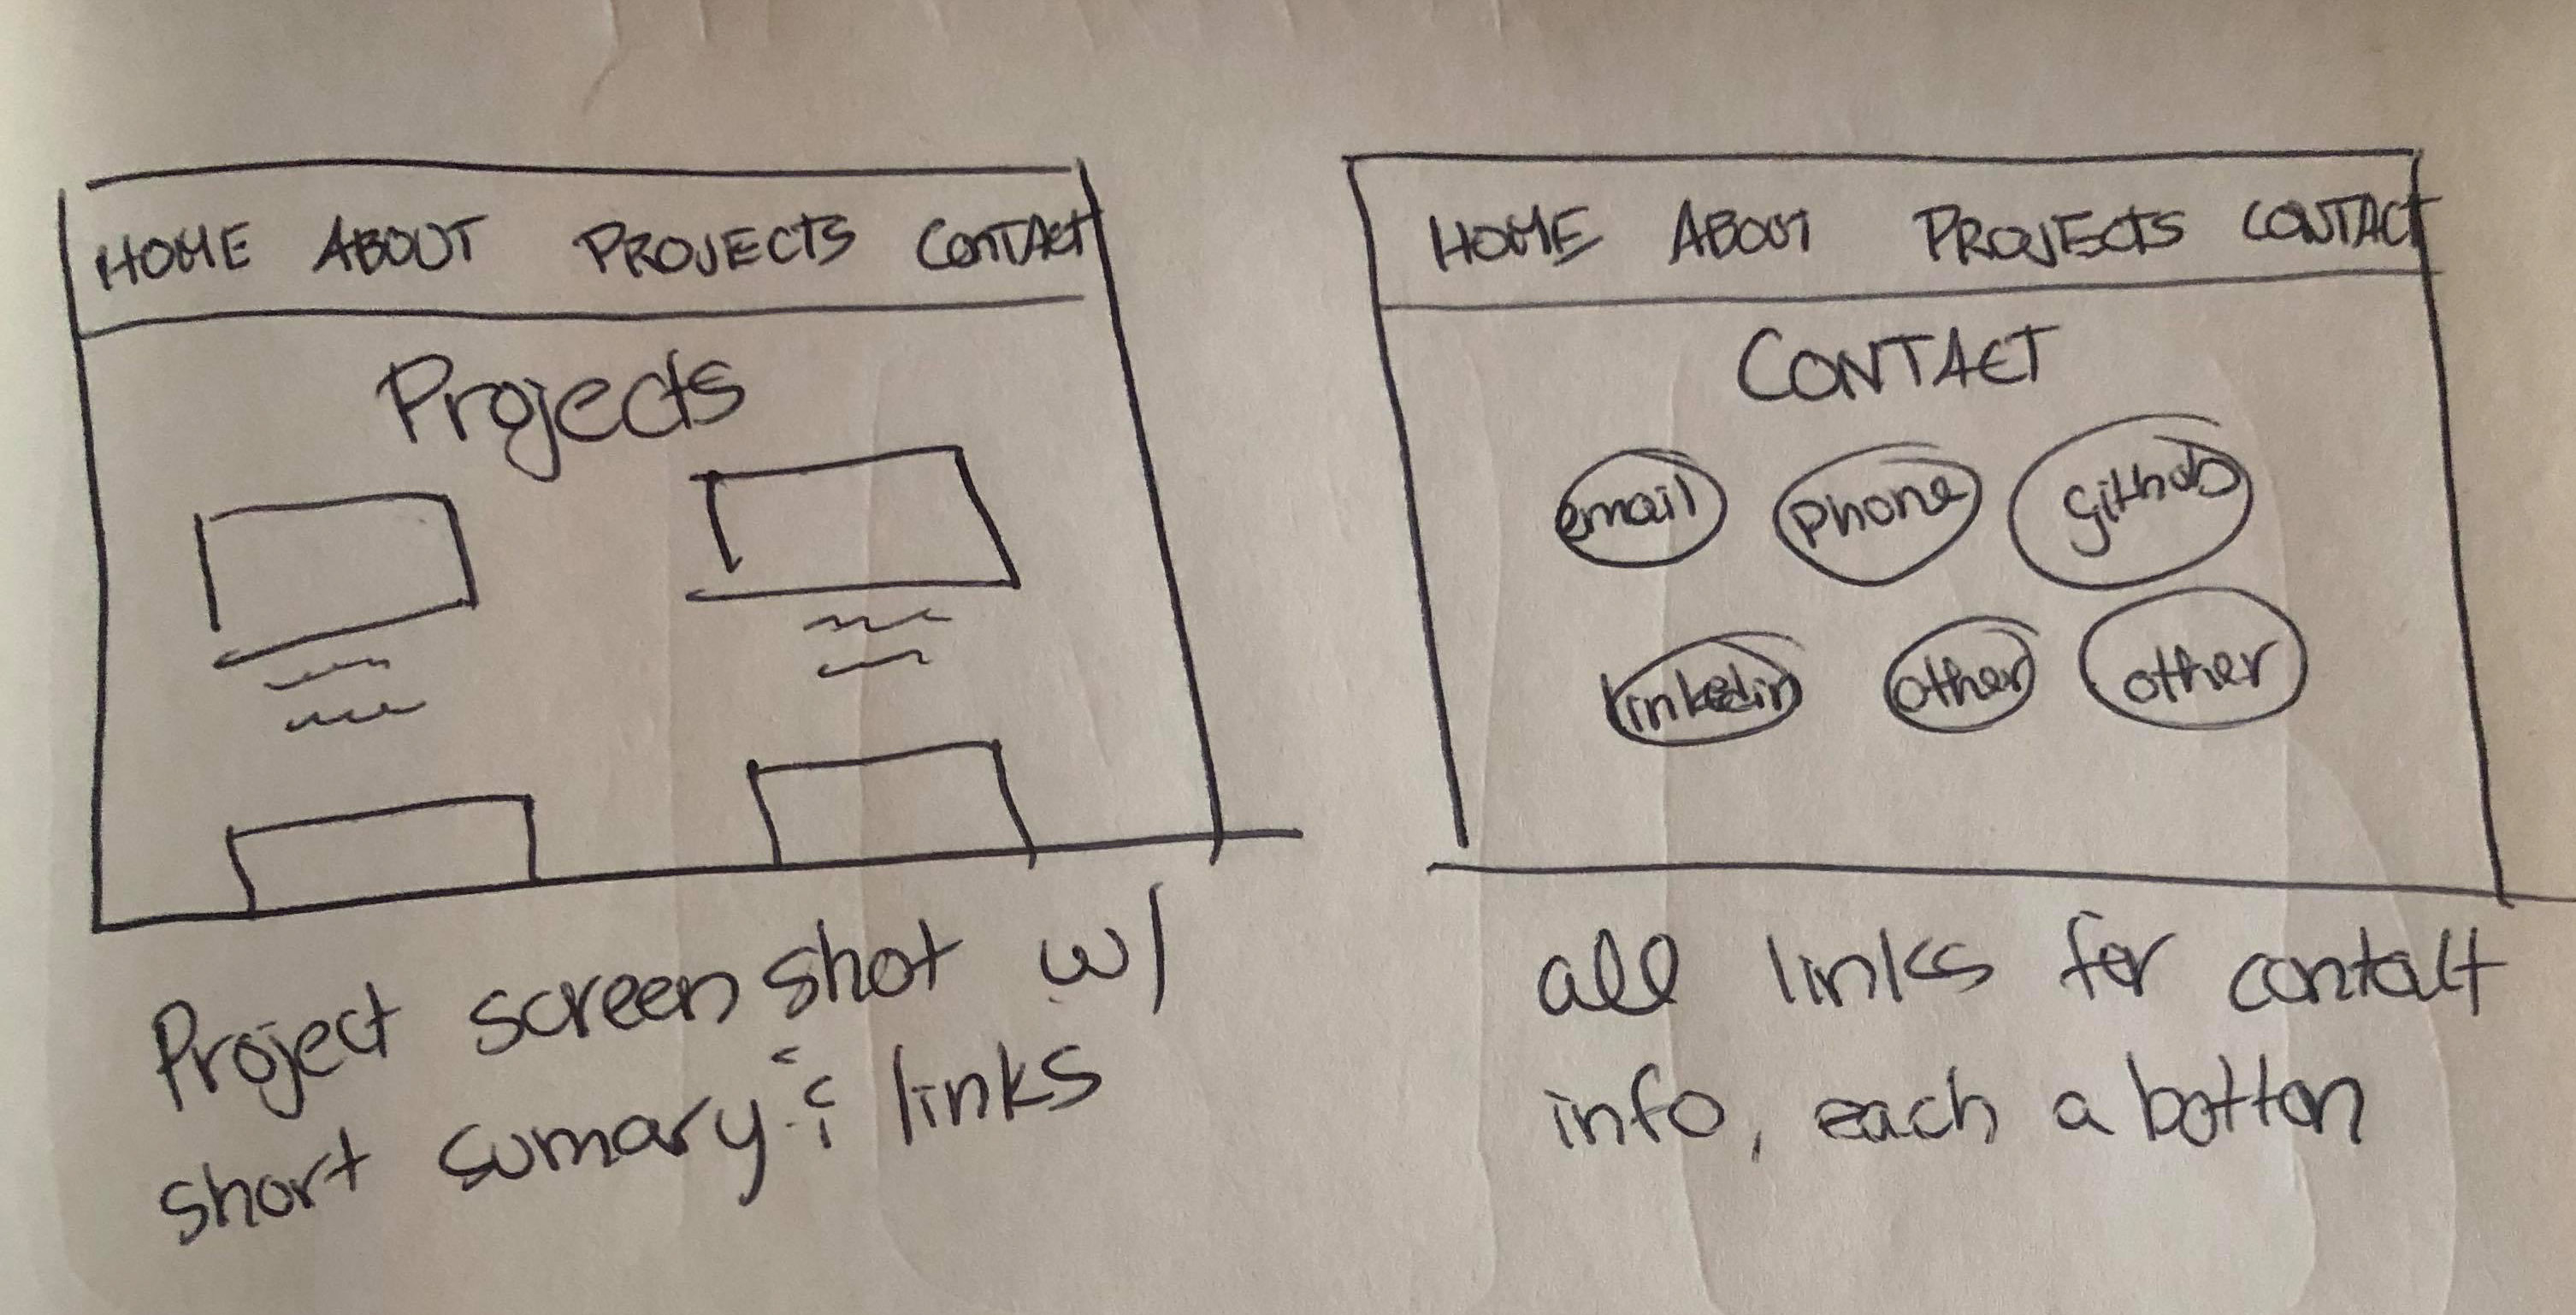 HOME ABOUT PROJECTS CONTACT
Projects
Project screen shot w/
short sumary & links
HOME ABOUT PROJECTS CONTACT
CONTACT
email phone github
linkedin other other
all links for contact
info, each a botton